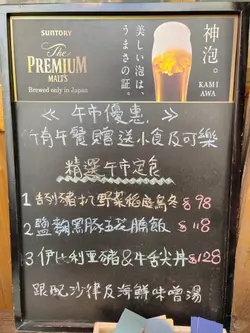 SUNTORY
The
PREMIUM
MALT'S
Brewed only in Japan
美しい泡は、
うまさの証。
神泡。
KAMI
AWA
≪ 午市優惠 ≫
惠顧午餐贈送小食及可樂
精選午市定食
1 吉列豬扒野菜稻庭烏冬 $98
2 鹽麴黑豚五花腩飯 $118
3 伊比利里豬&牛舌尖丼 $128
跟配沙律及海鮮味噌湯